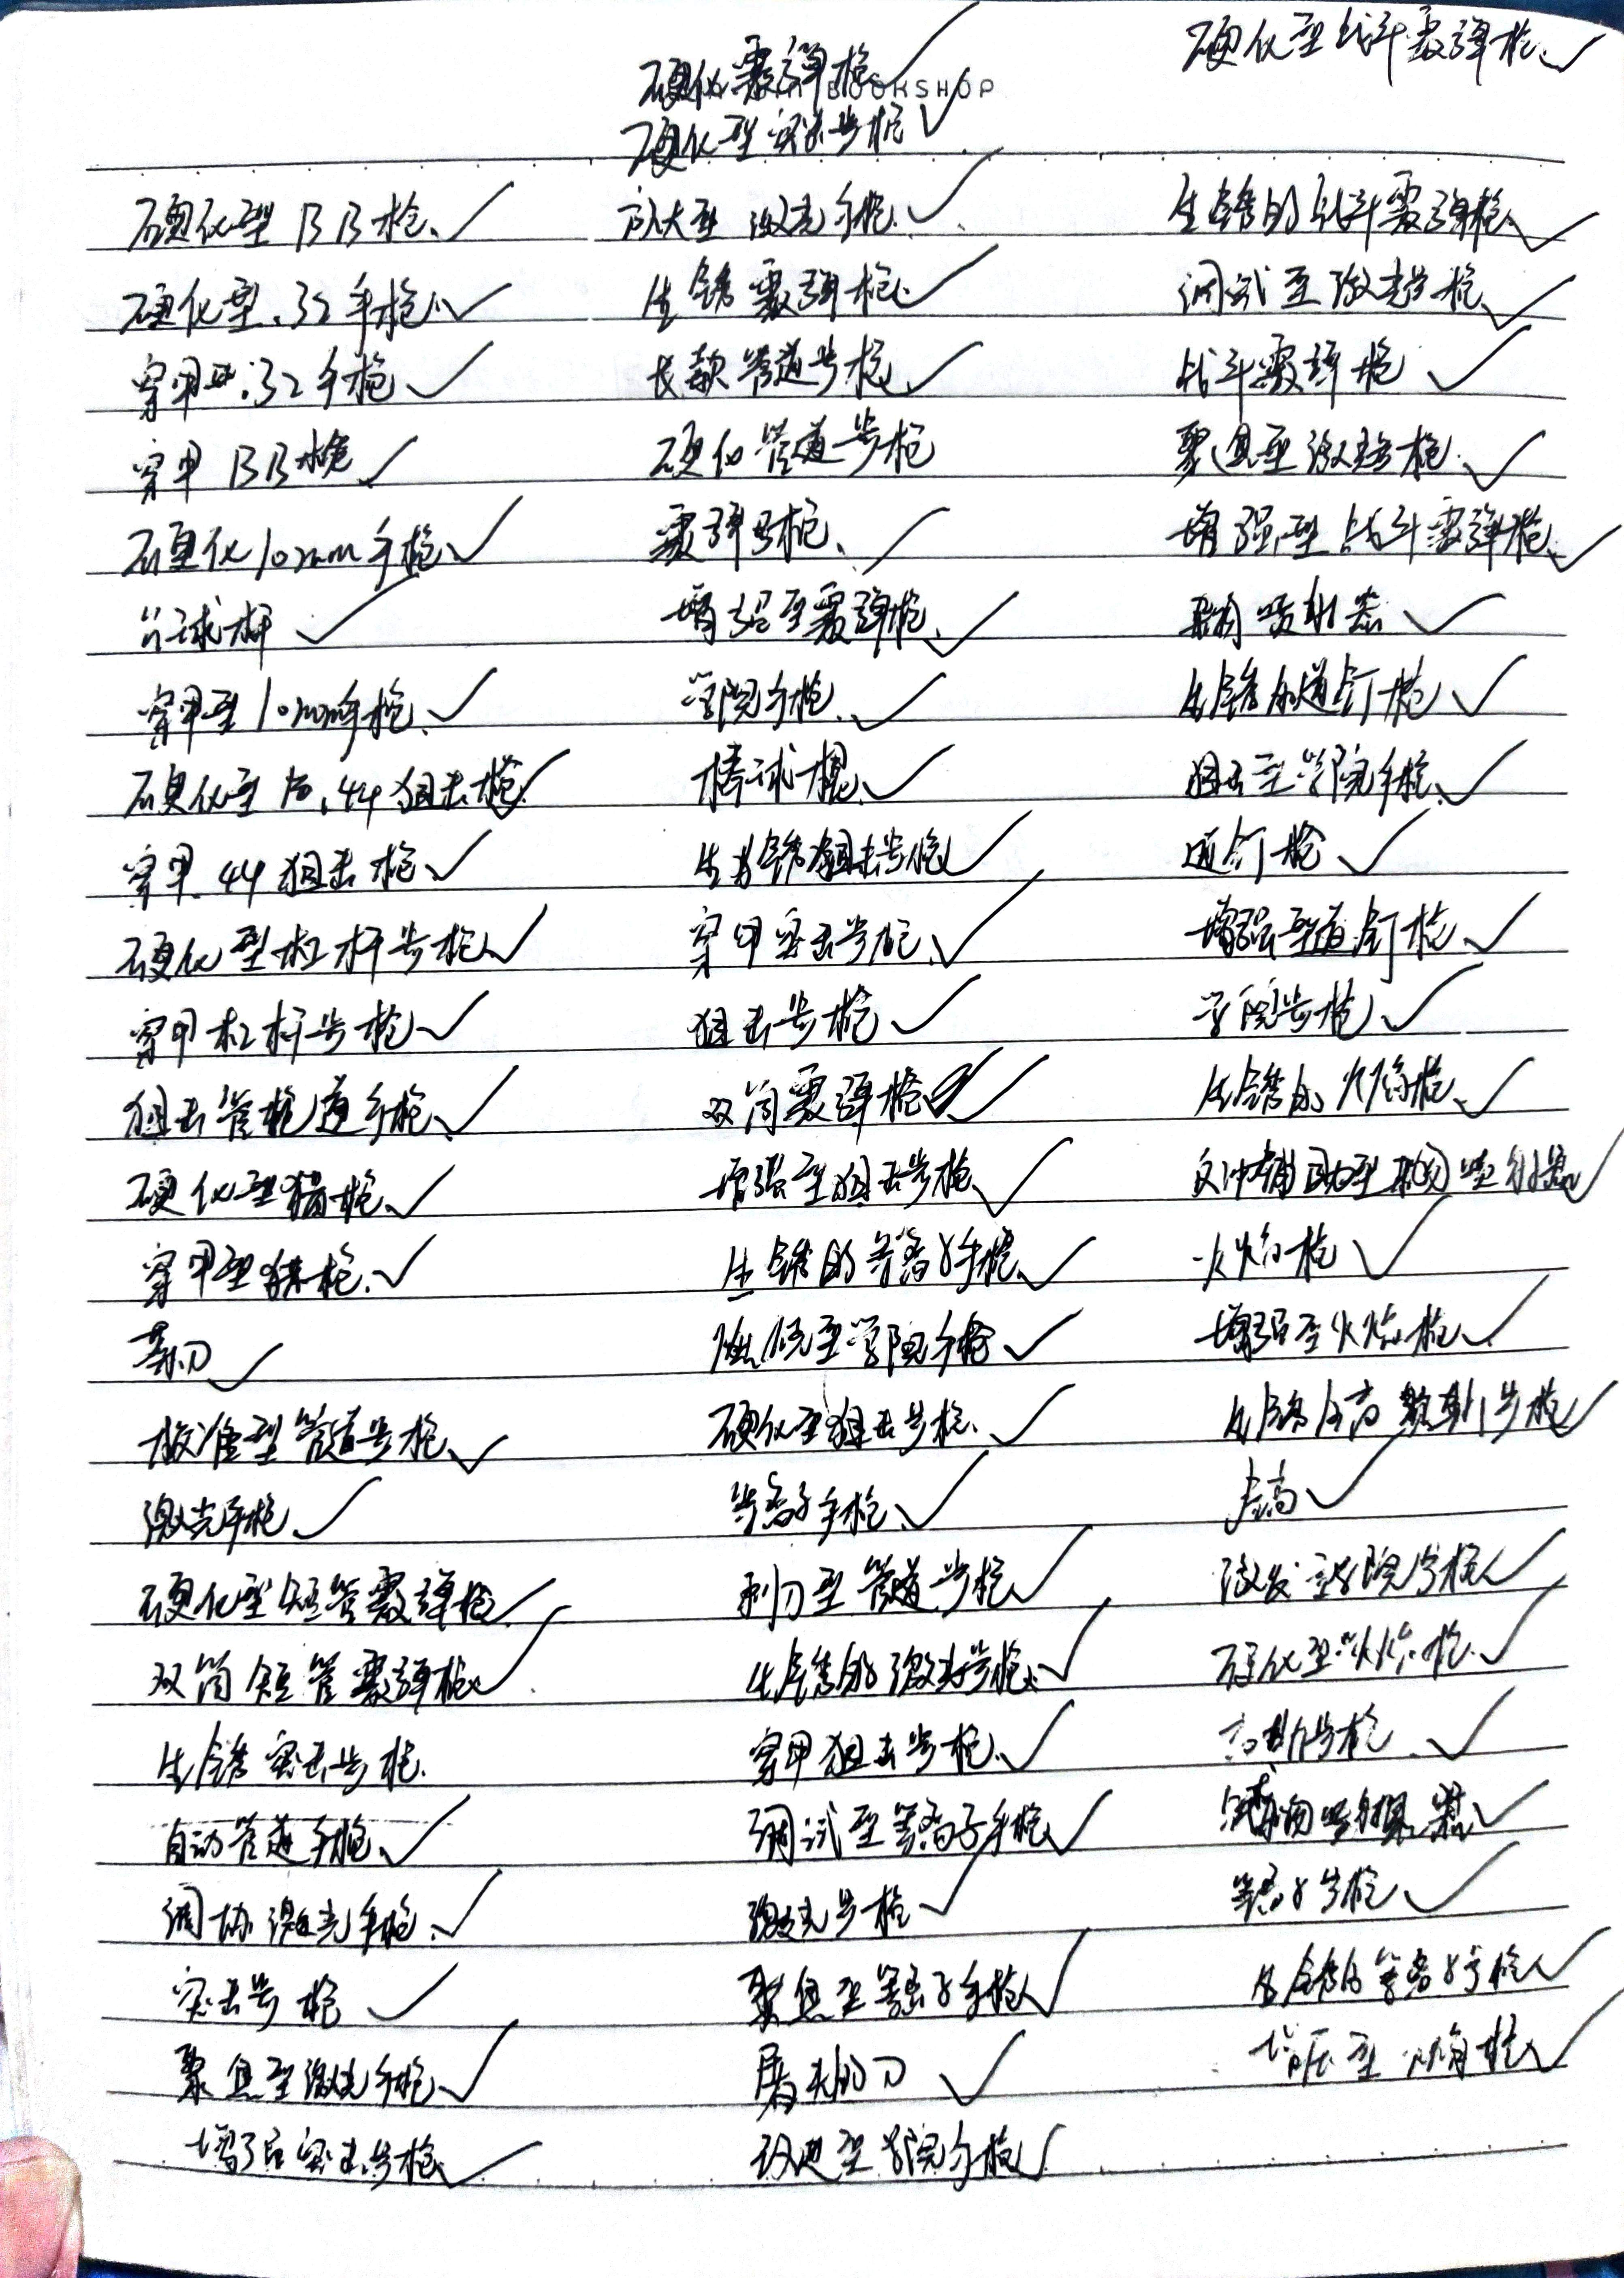 硬化霰弹枪
BOOKSHOP
硬化型突击步枪
硬化型BB枪
硬化型.32手枪
穿甲型.32手枪
穿甲BB枪
硬化10mm手枪
台球杆
穿甲型10mm手枪
硬化型.44狙击枪
穿甲.44狙击枪
硬化型杠杆步枪
穿甲杠杆步枪
狙击管道手枪
硬化型猎枪
穿甲型猎枪
菜刀
校准型管道步枪
激光手枪
硬化型短管霰弹枪
双筒短管霰弹枪
生锈突击步枪
自动管道手枪
调协激光手枪
突击步枪
聚焦型激光手枪
增强突击步枪
放大型激光手枪
生锈霰弹枪
长款管道步枪
硬化管道步枪
霰弹枪
增强型霰弹枪
学院手枪
棒球棍
生锈狙击步枪
穿甲突击步枪
狙击步枪
双筒霰弹枪
增强型狙击步枪
生锈的等离子手枪
学院手枪
硬化型狙击步枪
等离子手枪
刺刀型管道步枪
生锈的激光步枪
穿甲狙击步枪
调试型等离子手枪
激光步枪
聚焦型等离子手枪
屠夫的刀
改进型学院步枪
硬化型战斗霰弹枪
生锈的战斗霰弹枪
调试型激光步枪
战斗霰弹枪
聚焦型激光步枪
增强型战斗霰弹枪
杂物喷射器
生锈的道钉枪
狙击型学院手枪
道钉枪
增强型道钉枪
学院步枪
生锈的火焰枪
反冲辅助型杂物喷射器
火焰枪
增强型火焰枪
生锈高斯步枪
学院步枪
硬化型火焰枪
高斯步枪
杂物喷射器
等离子步枪
生锈的等离子步枪
增压型火焰枪